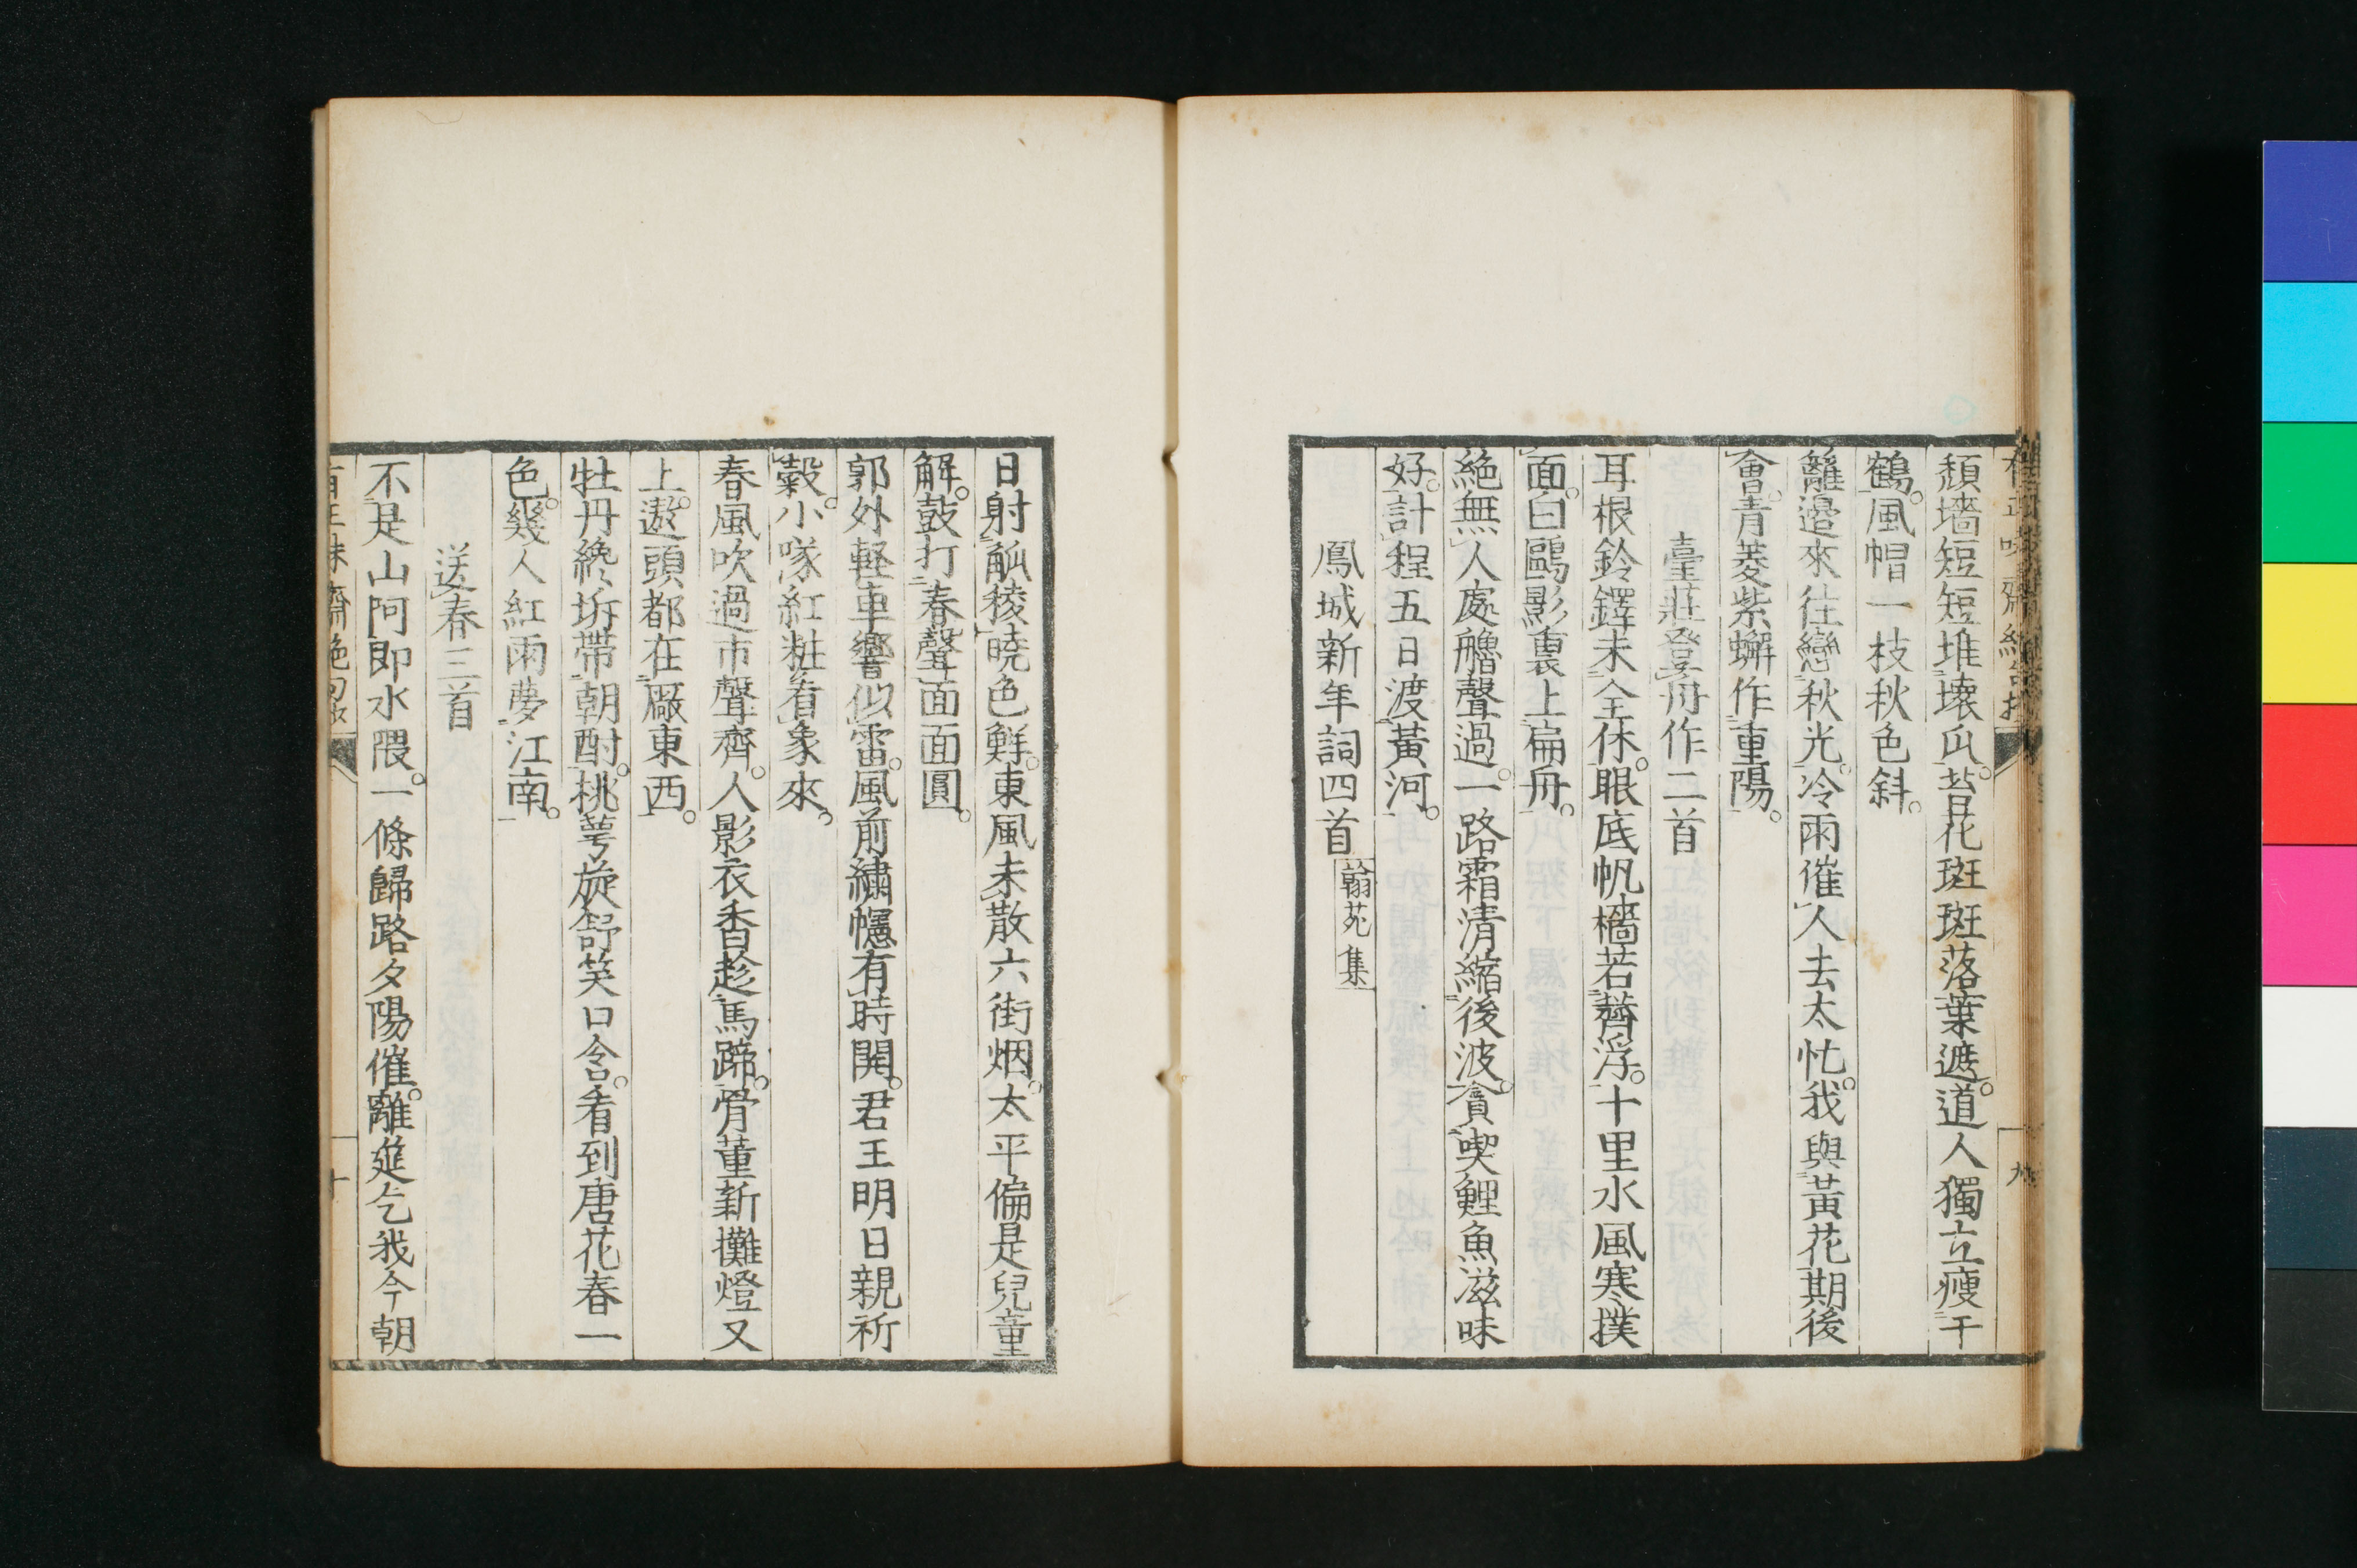 頽墻短短堆壞瓜苔花斑斑落葉遮道人獨立瘦于
鶴風帽一枝秋色斜
籬邉來往戀秋光冷雨催人去太忙我與黃花期後
會青菱紫蠏作重陽
臺莊登舟作二首
耳根鈴鐸未全休眼底帆檣若薺浮十里水風寒撲
面白鷗影裏上扁舟
絶無人處艪聲過一路霜清縮後波貪喫鯉魚滋味
好計程五日渡黃河
鳳城新年詞四首翰苑集
日射觚稜曉色鮮東風未散六街烟太平偏是兒童
解鼓打春聲面面圓
郭外軽車響似雷風前繡幰有時開君王明日親祈
穀小隊紅粧看象來
春風吹過市聲齊人影衣香趁馬蹄骨董新攤燈又
上遨頭都在厰東西
牡丹纔坼帶朝酣桃萼旋舒笑口含看到唐花春一
色幾人紅雨夢江南
送春三首
不是山阿即水隈一條歸路夕陽催離筵乞我今朝
十